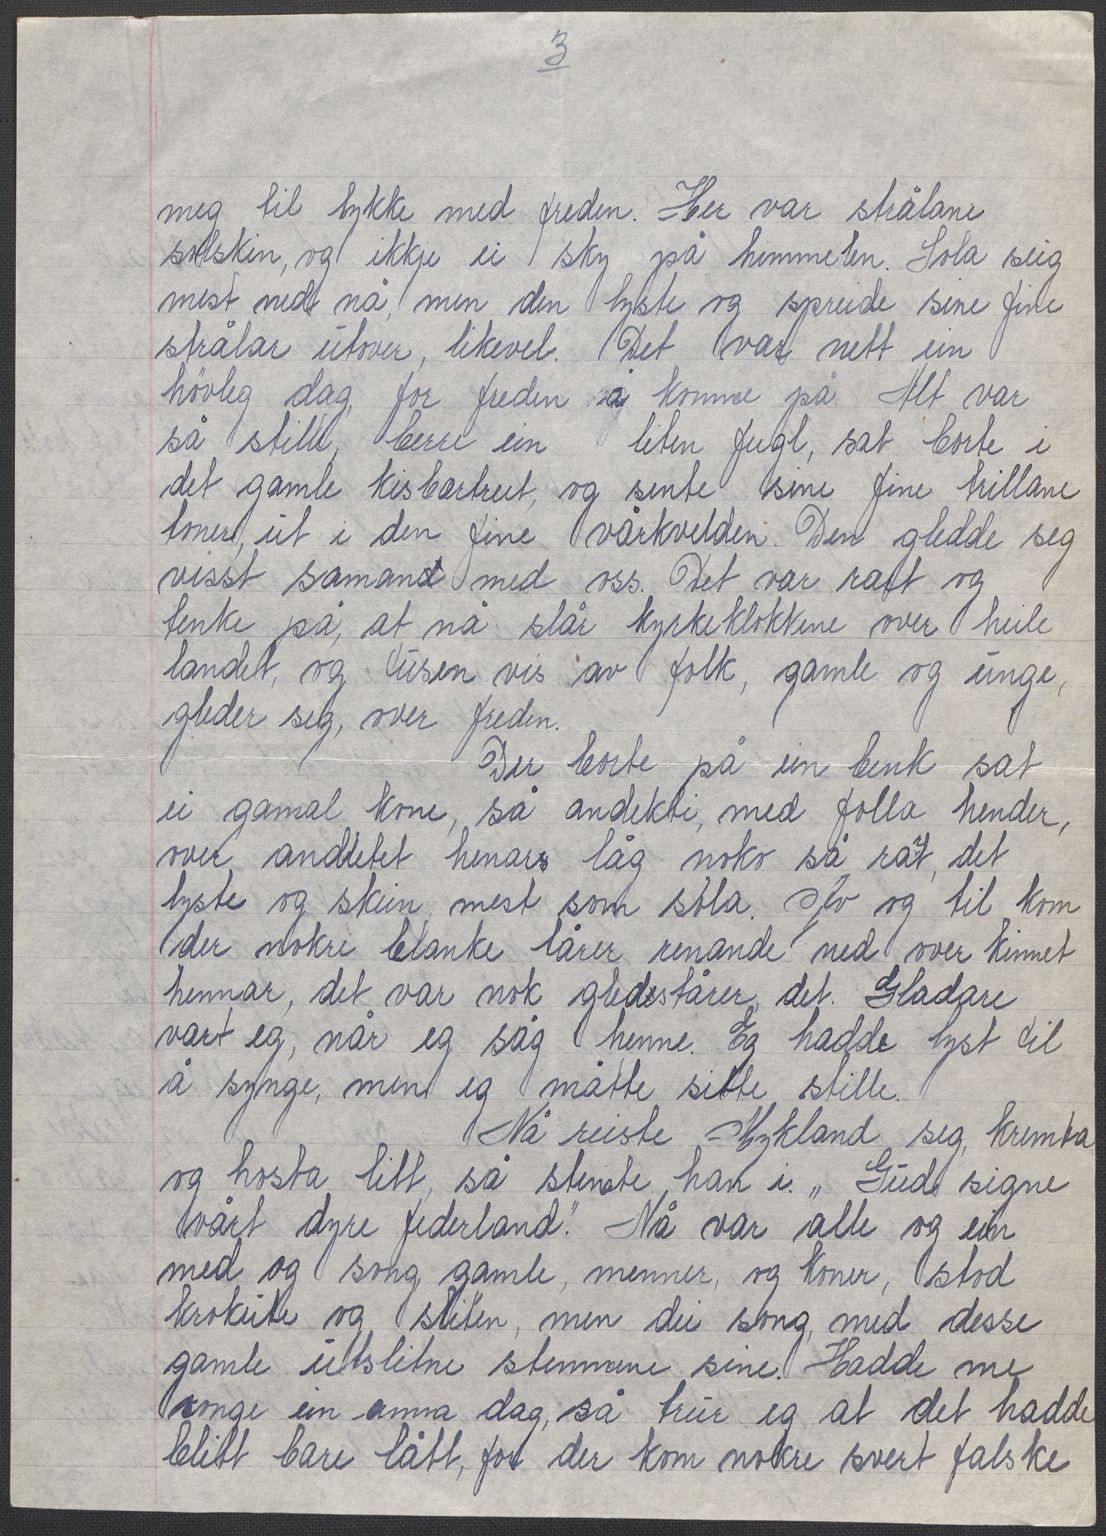 3
meg til lykke med freden. Her var strålane
solskin, og ikkje ei sky på himmelen. Sola seig
mest ned nå, men den lyste og spreide sine fine
strålar utover, likevel. Det var nett ein
hövleg dag, for freden å komme på. Alt var
så stille, berre ein liten fugl, sat borte i
det gamle kisbærtreet, og sente sine fine trillane
toner, ut i den fine vårkvelden. Den gledde seg
visst samand med oss. Det var rart og
tenke på, at nå slår kyrkeklokkene over heile
landet, og tusen vis av folk, gamle og unge,
gleder seg, over freden.
Der borte på ein benk sat
ei gamal kone, så andekti, med folla hender,
over andletet henars låg noko så rät, det
lyste og skein, mest som sola. Av og til kom
der nokre blanke tårer renande ned over kinnet
hennar, det var nok gledestårer, det. Gladare
vart eg, når eg såg henne. Eg hadde lyst til
å synge, men eg måtte sitte stille.
Nå reiste Mykland seg, kremta
og hosta litt, så stemte han i. „Gud signe
vårt dyre federland." Nå var alle og ein
med og song, gamle, menner, og koner, stod
krokute og sliten, men dei song, med desse
gamle utslitne stemmene sine. Hadde me
songe ein anna dag, så trur eg at det hadde
blitt bare lått, for der kom nokre svert falske